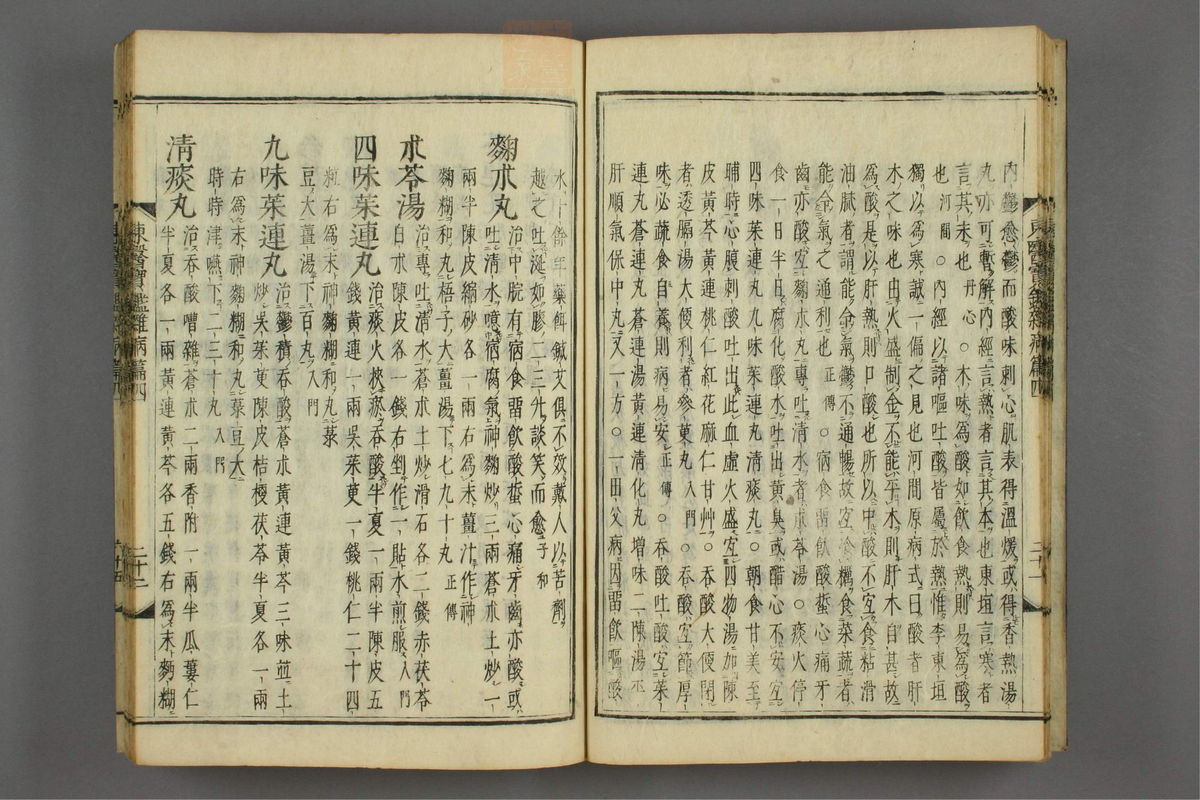 內鬱愈鬱而酸味刺心肌表得溫煖或得香熱湯
丸亦可暫解內經言熱者言其本也東垣言寒者
言其末也丹心○木味爲酸如飮食熱則易爲酸
也河間○內經以諸嘔吐酸皆屬於熱惟李東垣
獨以爲寒誠一偏之見也河間原病式曰酸者肝
木之味也由火盛制金不能平木則肝木自甚故
爲酸是以肝熱則口酸也所以中酸不宜食粘滑
油膩者謂能令氣鬱不通暢故宜冷糲食菜蔬者
能令氣之通利也正傳○宿食留飮酸蜇心痛牙
齒亦酸宜麴朮丸專吐清水者朮苓湯○痰火停
食一日半日腐化酸水吐出黃臭或醋心不安宜
四味茱連丸九味茱連丸清痰丸○朝食甘美至
晡時心膈刺酸吐出此血虛火盛宜四物湯加陳
皮黃芩黃連桃仁紅花麻仁甘艸○吞酸大便閉
者透膈湯大便利者參萸丸入門○吞酸宜節厚
味必蔬食自養則病易安正傳○吞酸吐酸宜茱
連丸蒼連丸蒼連湯黃連清化丸增味二陳湯丕
肝順氣保中丸又一方○一田父病因留飮嘔酸
東醫寶鑑雜病篇四
水十餘年藥餌鍼艾俱不效戴人以苦劑
越之吐涎如膠二三升談笑而愈子和
麴朮丸 治中脘有宿食留飮酸蜇心痛牙齒亦酸或
吐清水噫宿腐氣神麴炒三兩蒼朮土炒一
兩半陳皮縮砂各一兩右爲末薑汁作神
麴糊和丸梧子大薑湯下七九十丸正傳
朮苓湯 治專吐清水蒼朮土炒滑石各二錢赤茯苓
白朮陳皮各一錢右剉作一貼水煎服入門
四味茱連丸 治痰火挾瘀吞酸半夏一兩半陳皮五
錢黃連一兩吳茱萸一錢桃仁二十四
粒右爲末神麴糊和丸菉
豆大薑湯下百丸入門
九味茱連丸 治鬱積吞酸蒼朮黃連黃芩三味並土
炒吳茱萸陳皮桔梗茯苓半夏各一兩
右爲末神麴糊和丸菉豆大
時時津嚥下二三十丸入門
清痰丸 治吞酸嘈雜蒼朮二兩香附一兩半瓜蔞仁
半夏各一兩黃連黃芩各五錢右爲末麪糊
東醫寶鑑雜病篇四
二十二